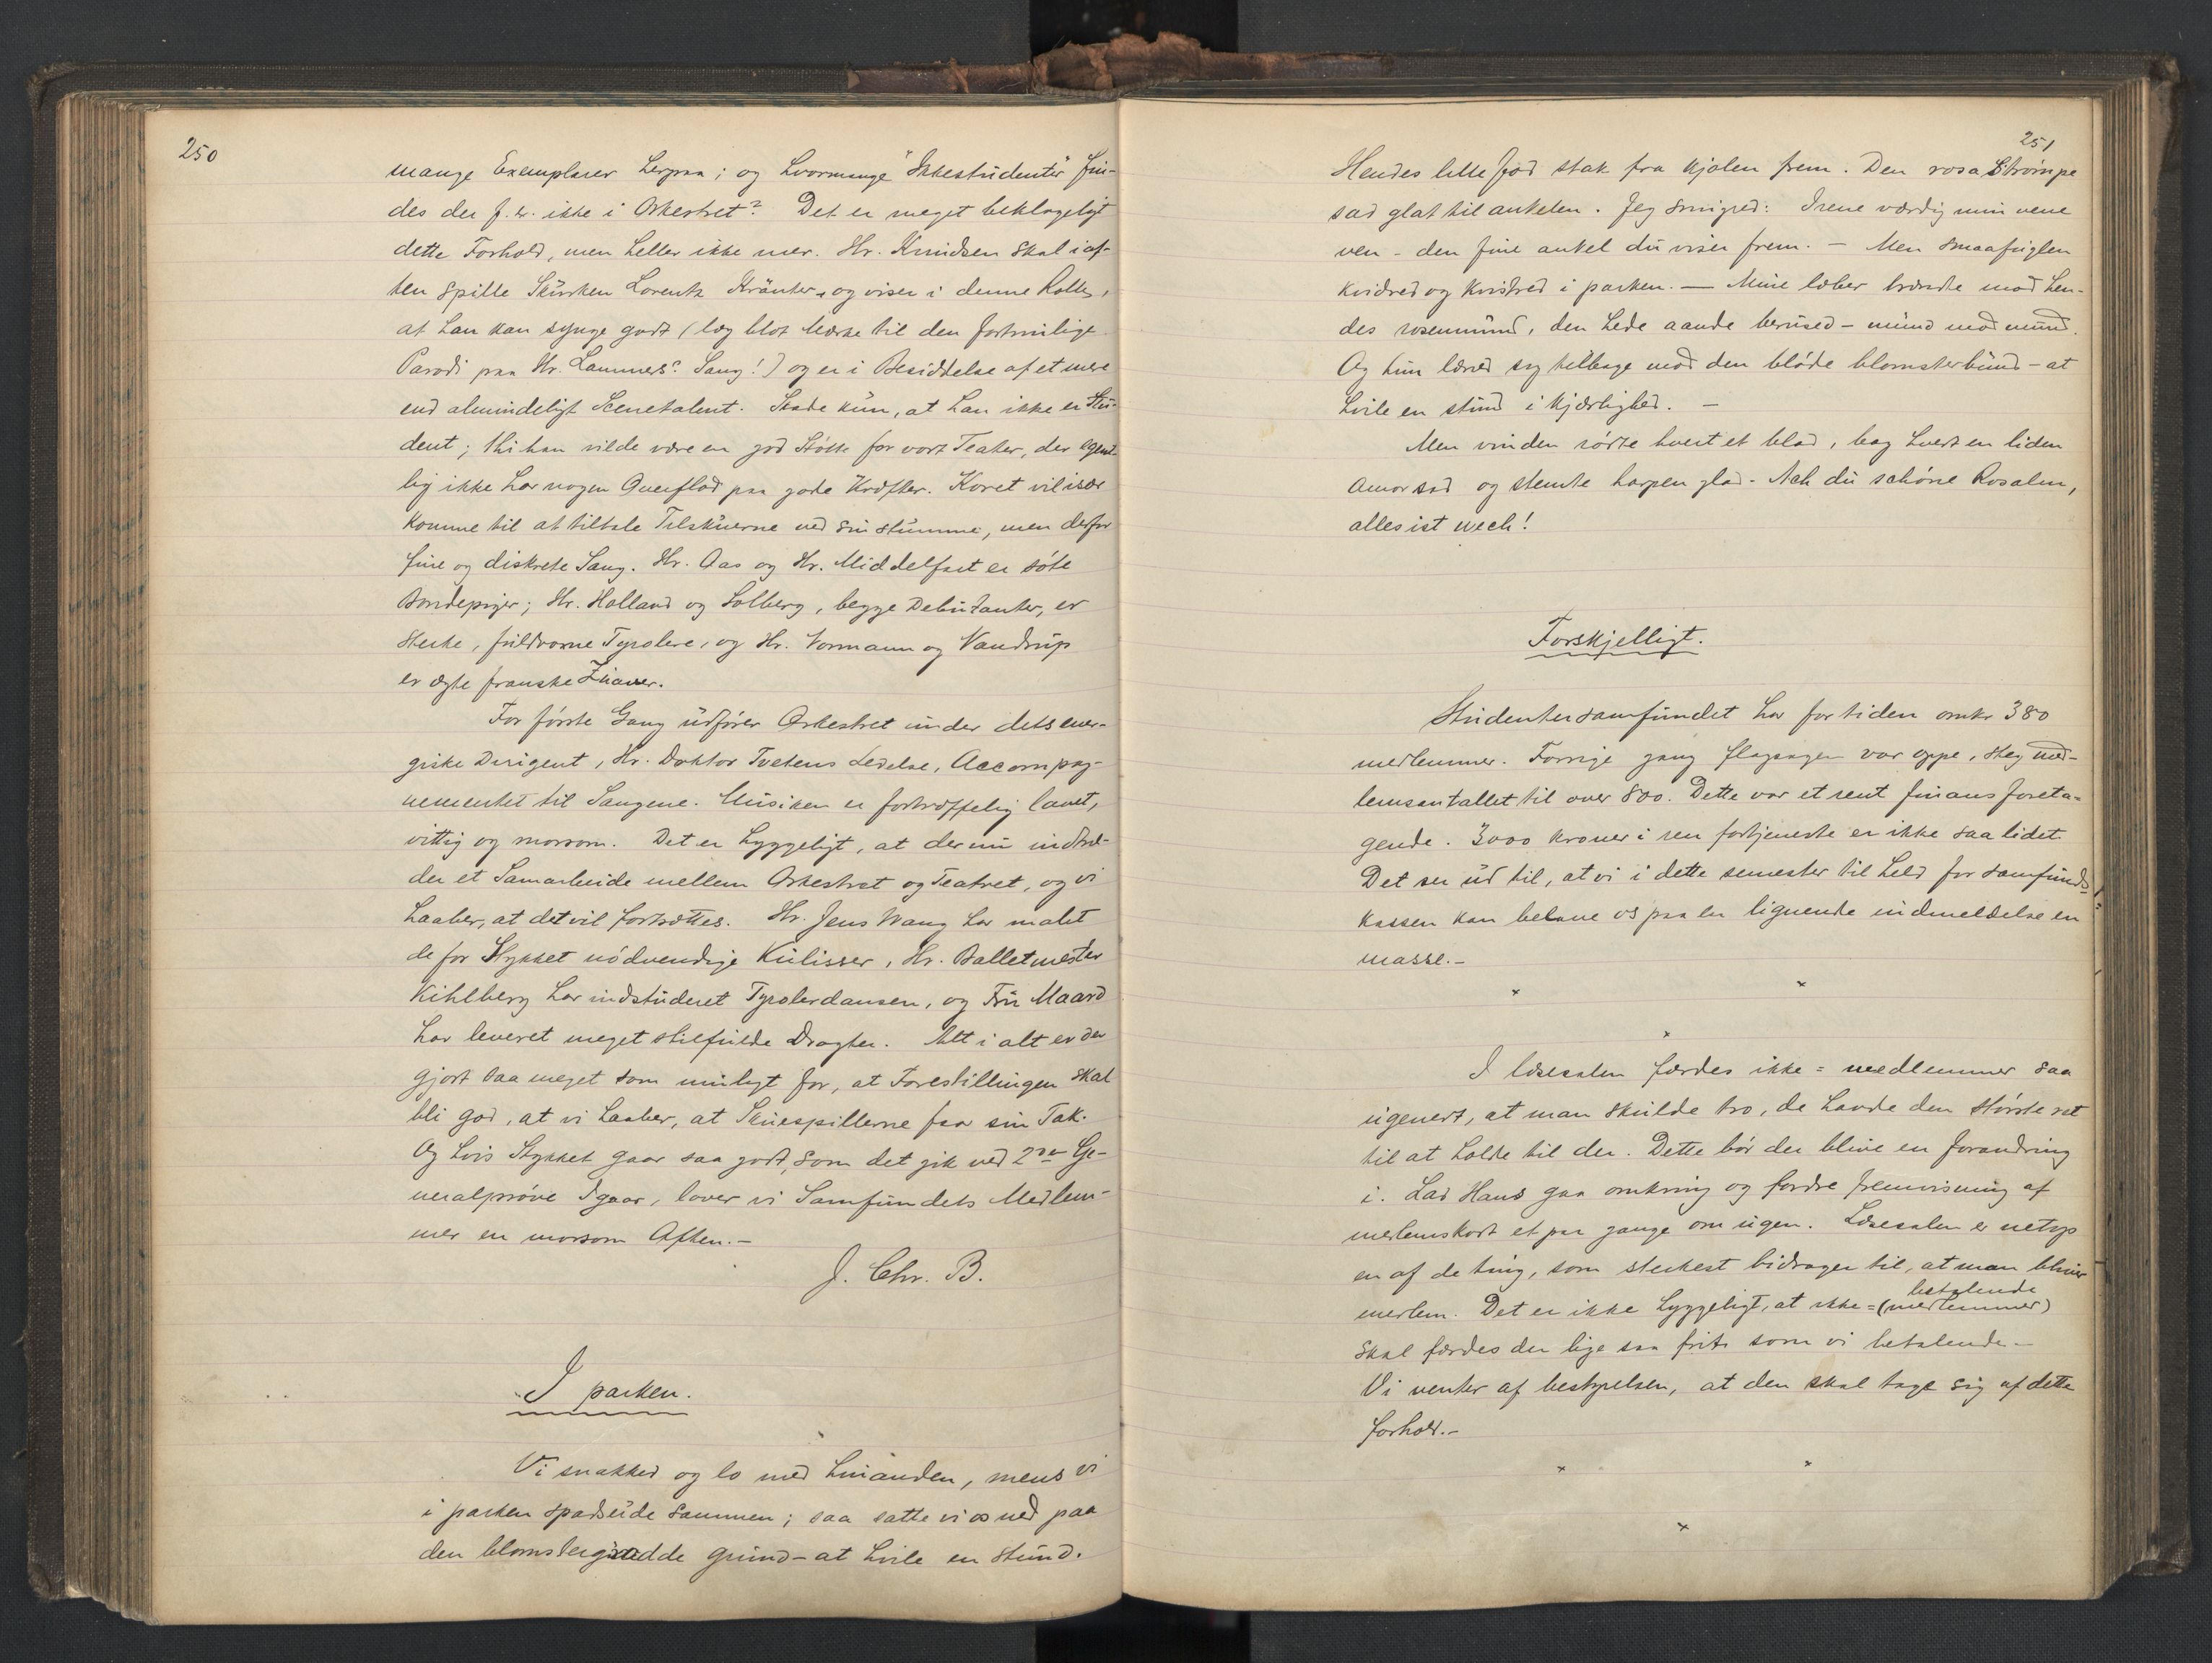 250
mange Exemplarer herpaa; og hvormange "Ikkestudenter" fin-
des der f. ex. ikke i Orkestret? Det er meget beklageligt
dette Forhold, men heller ikke mer. Hr. Knudsen skal iaf-
ten spille Skurken Lorentz Kränter, og viser i denne Rolle,
at han kan synge godt (læg blot Mærke til den fortrinlige
Parodi paa Hr. Lammers's Sang!) og er i Besiddelse af et mere
end almindeligt Scenetalent. Skade kun, at han ikke er Stu-
dent; thi han vilde være en god Støtte for vort Teater, der egent-
lig ikke har nogen Overflod paa gode Kræfter. Koret vil især
komme til at tiltale Tilskuerne ved sin stumme, men derfor
fine og diskrete Sang. Hr. Aas og Hr. Middelfart er søte
Bondepiger; Hr. Holland og Solberg, begge Debutanter, er
sterke, fuldvoxne Tyrolere, og Hr. Vormann og Vandrup
er ægte franske Zuaver.
For første Gang udfører Orkestret under dets ener-
giske Dirigent, Hr. Doktor Tvetens Ledelse, Accompag-
nementet til Sangene. Musiken er fortræffelig lavet,
vittig og morsom. Det er hyggeligt, at der nu indtræ-
der et Samarbeide mellem Orkestret og Teatret, og vi
haaber, at det vil fortsættes. Hr. Jens Wang har malet
de for Stykket nødvendige Kulisser, Hr. Balletmester
Kihlberg har indstuderet Tyrolerdansen, og Fru Maard
har leveret meget stilfulde Dragter. Alt i alt er der
gjort saa meget som muligt for, at Forestillingen skal
bli god, at vi haaber, at Skuespillerne faar sin Tak.
Og hvis Stykket gaar saa godt, som det gik ved 2den Ge-
neralprøve Igaar, lover vi Samfundets Medlem-
mer en morsom Aften.-
J. Chr. B.
I parken.
Vi snakked og lo med hinanden, mens vi
i parken spadsede sammen; saa satte vi os ned paa
den blomstergrødde grund - at hvile en stund.
251
Hendes lille fod stak fra kjolen frem. Den rosa Strømpe
sad glat til ankelen. Jeg smigred: Irene værdig min vene
ven - den fine ankel du viser frem. - Men smaafuglen
kvidred og kvistred i parken. - Mine læber brændte mod hen-
des rosenmund, den hede aande berused - mund mod mund.
Og hun læned sig tilbage mod den bløde blomsterbund - at
hvile en stund i kjærlighed. -
Men vinden rørte hvert et blad, bag hvert en liden
amor sad og stemte harpen glad. - Ach du schöne Rosalin,
alles ist wech!
Forskjelligt.
Studentersamfundet har for tiden omkr 380
medlemmer. Forrige gang flagsagen var oppe, steg med-
lemsantallet til over 800. Dette var et rent finansforeta-
gende. 3000 kroner i ren fortjeneste er ikke saa lidet.
Det ser ud til, at vi i dette semester til held for samfunds-
kassen kan belave os paa en lignende indmeldelse en
masse.-
x x
x
I læsesalen færdes ikke=medlemmer saa
ugenert, at man skulde tro, de havde den største ret
til at holde til der. Dette bør der blive en forandring
i. Lad Hans gaa omkring og fordre fremvisning af
medlemskort et par gange om ugen. Læsesalen er netop
en af de ting, som sterkest bidrager til, at man bliver
betalende
medlem. Det er ikke hyggeligt, at ikke=(medlemmer)
skal færdes der lige saa frit som vi betalende.-
Vi venter af bestyrelsen, at den skal tage sig af dette
forhold.-
x x
x